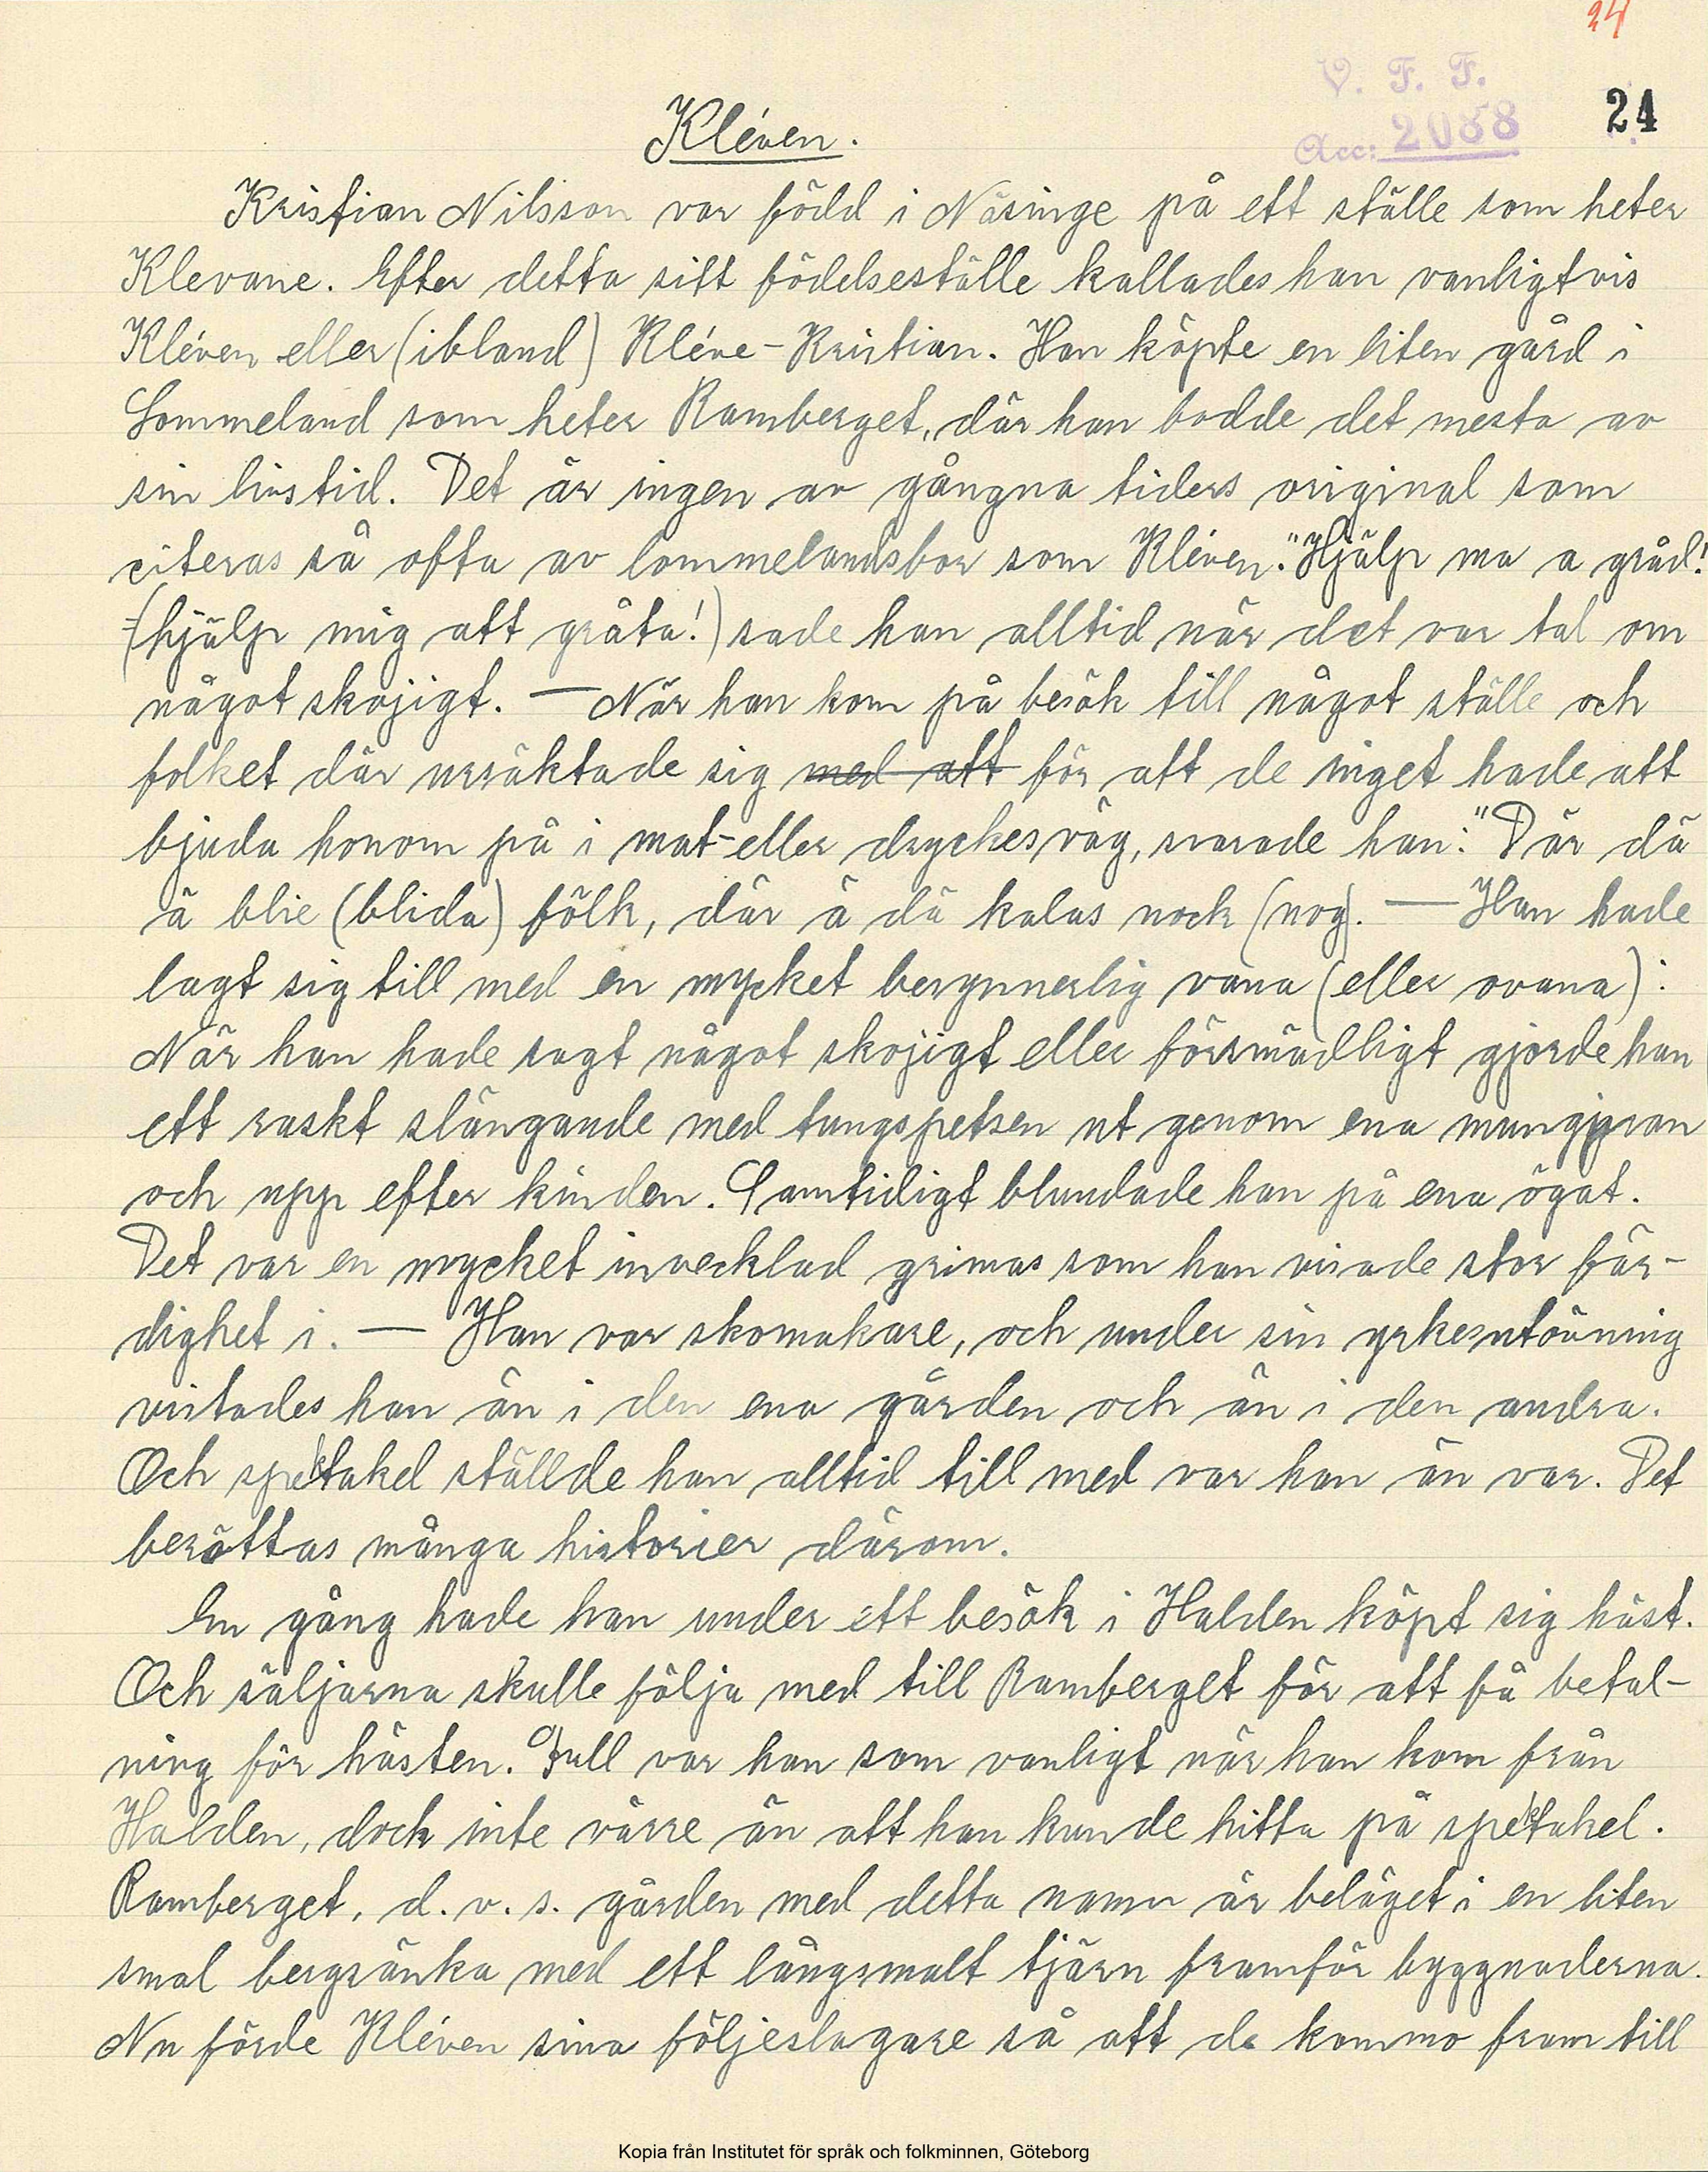 24
V. F. F.
Acc: 2088
24
Kléven.
Kristian Nilsson var född i Näsinge på ett ställe som heter
Klevane. Efter detta sitt födelseställe kallades han vanligtvis
Kléven eller (ibland) Kléve-Kristian. Han köpte en liten gård i
Lommeland som heter Ramberget, där han bodde det mesta av
sin livstid. Det är ingen av gångna tiders original som
citeras så ofta av lommelandsbor som Kléven. "Hjälp ma a gråd!
=(hjälp mig att gråta!) sade han alltid när det var tal om
något skojigt. — När han kom på besök till något ställe och
folket där ursäktade sig med att för att de inget hade att
bjuda honom på i mat- eller dryckesväg, svarade han: "Där dä
ä blie (blida) fölk, där ä dä kalas nock (nog). — Han hade
lagt sig till med en mycket besynnerlig vana (eller ovana):
När han hade sagt något skojigt eller försmädligt gjorde han
ett raskt slängande med tungspetsen ut genom ena mungipan
och upp efter kinden. Samtidigt blundade han på ena ögat.
Det var en mycket invecklad grimas som han visade stor fär-
dighet i. — Han var skomakare, och under sin yrkesutövning
vistades han än i den ena gården och än i den andra.
Och spektakel ställde han alltid till med var han än var. Det
berättas många historier därom.
En gång hade han under ett besök i Halden köpt sig häst.
Och säljarna skulle följa med till Ramberget för att få betal-
ning för hästen. Full var han som vanligt när han kom från
Halden, dock inte värre än att han kunde hitta på spektakel.
Ramberget, d. v. s. gården med detta namn är beläget i en liten
smal bergränka med ett långsmalt tjärn framför byggnaderna.
Nu förde Kléven sina följeslagare så att de kommo fram till
Kopia från Institutet för språk och folkminnen, Göteborg